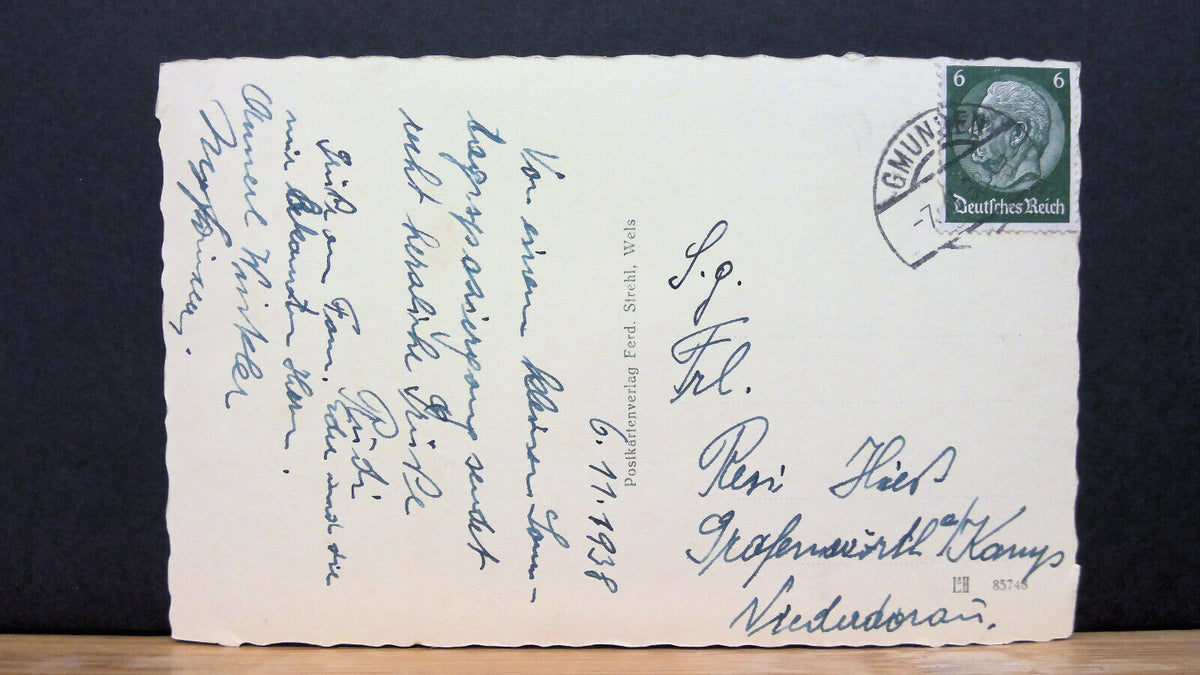 6.11.1938
Von einem kleinen Sonn-
tagsspaziergang sendet
recht herzliche Grüße
Rudi
Grüße an Fam. und die
mir bekannten Herrn.
Annerl Winkler
Postkartenverlag Ferd. Strehl, Wels
6 6
Deutsches Reich
GMUNDEN
-7.
S. g.
Frl.
Resi Hieß
Grafenwörth a/Kamp
Niederdonau.
85748